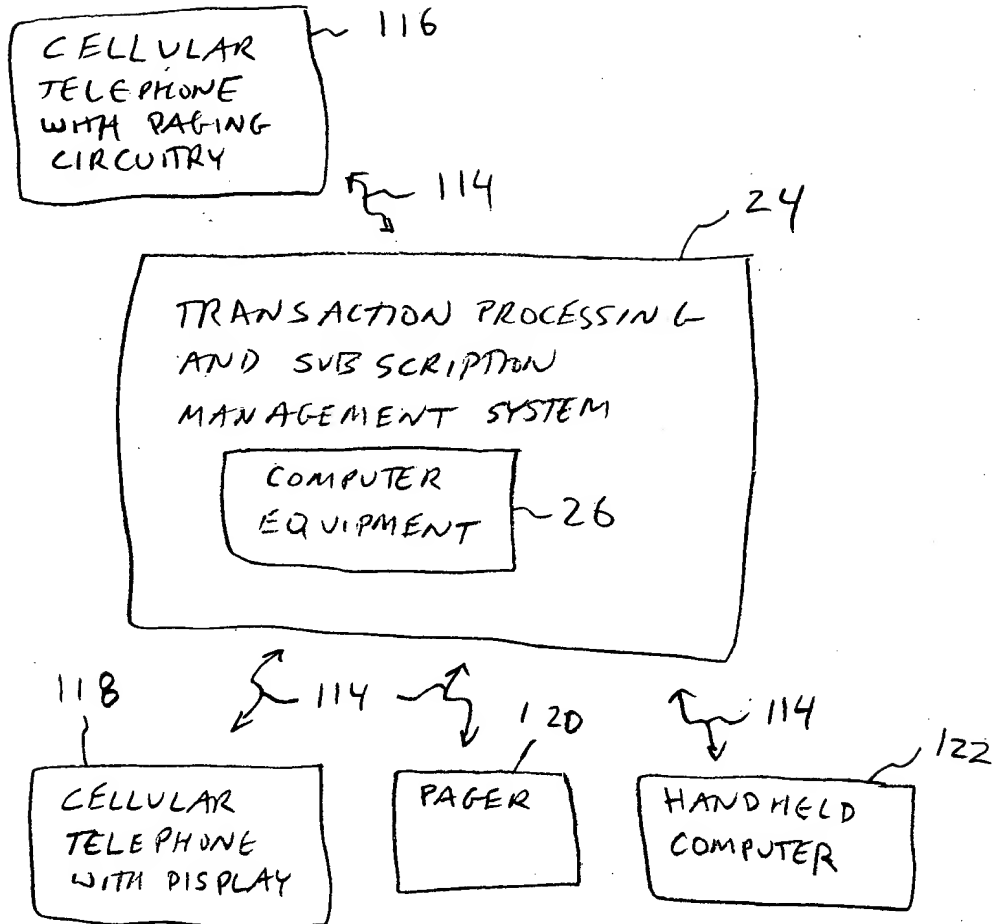 116
CELLULAR
TELEPHONE
WITH PAGING
CIRCUITRY
114
24
TRANSACTION PROCESSING
AND SUBSCRIPTION
MANAGEMENT SYSTEM
COMPUTER
EQUIPMENT
26
118
114
120
114
122
CELLULAR
TELEPHONE
WITH DISPLAY
PAGER
HANDHELD
COMPUTER